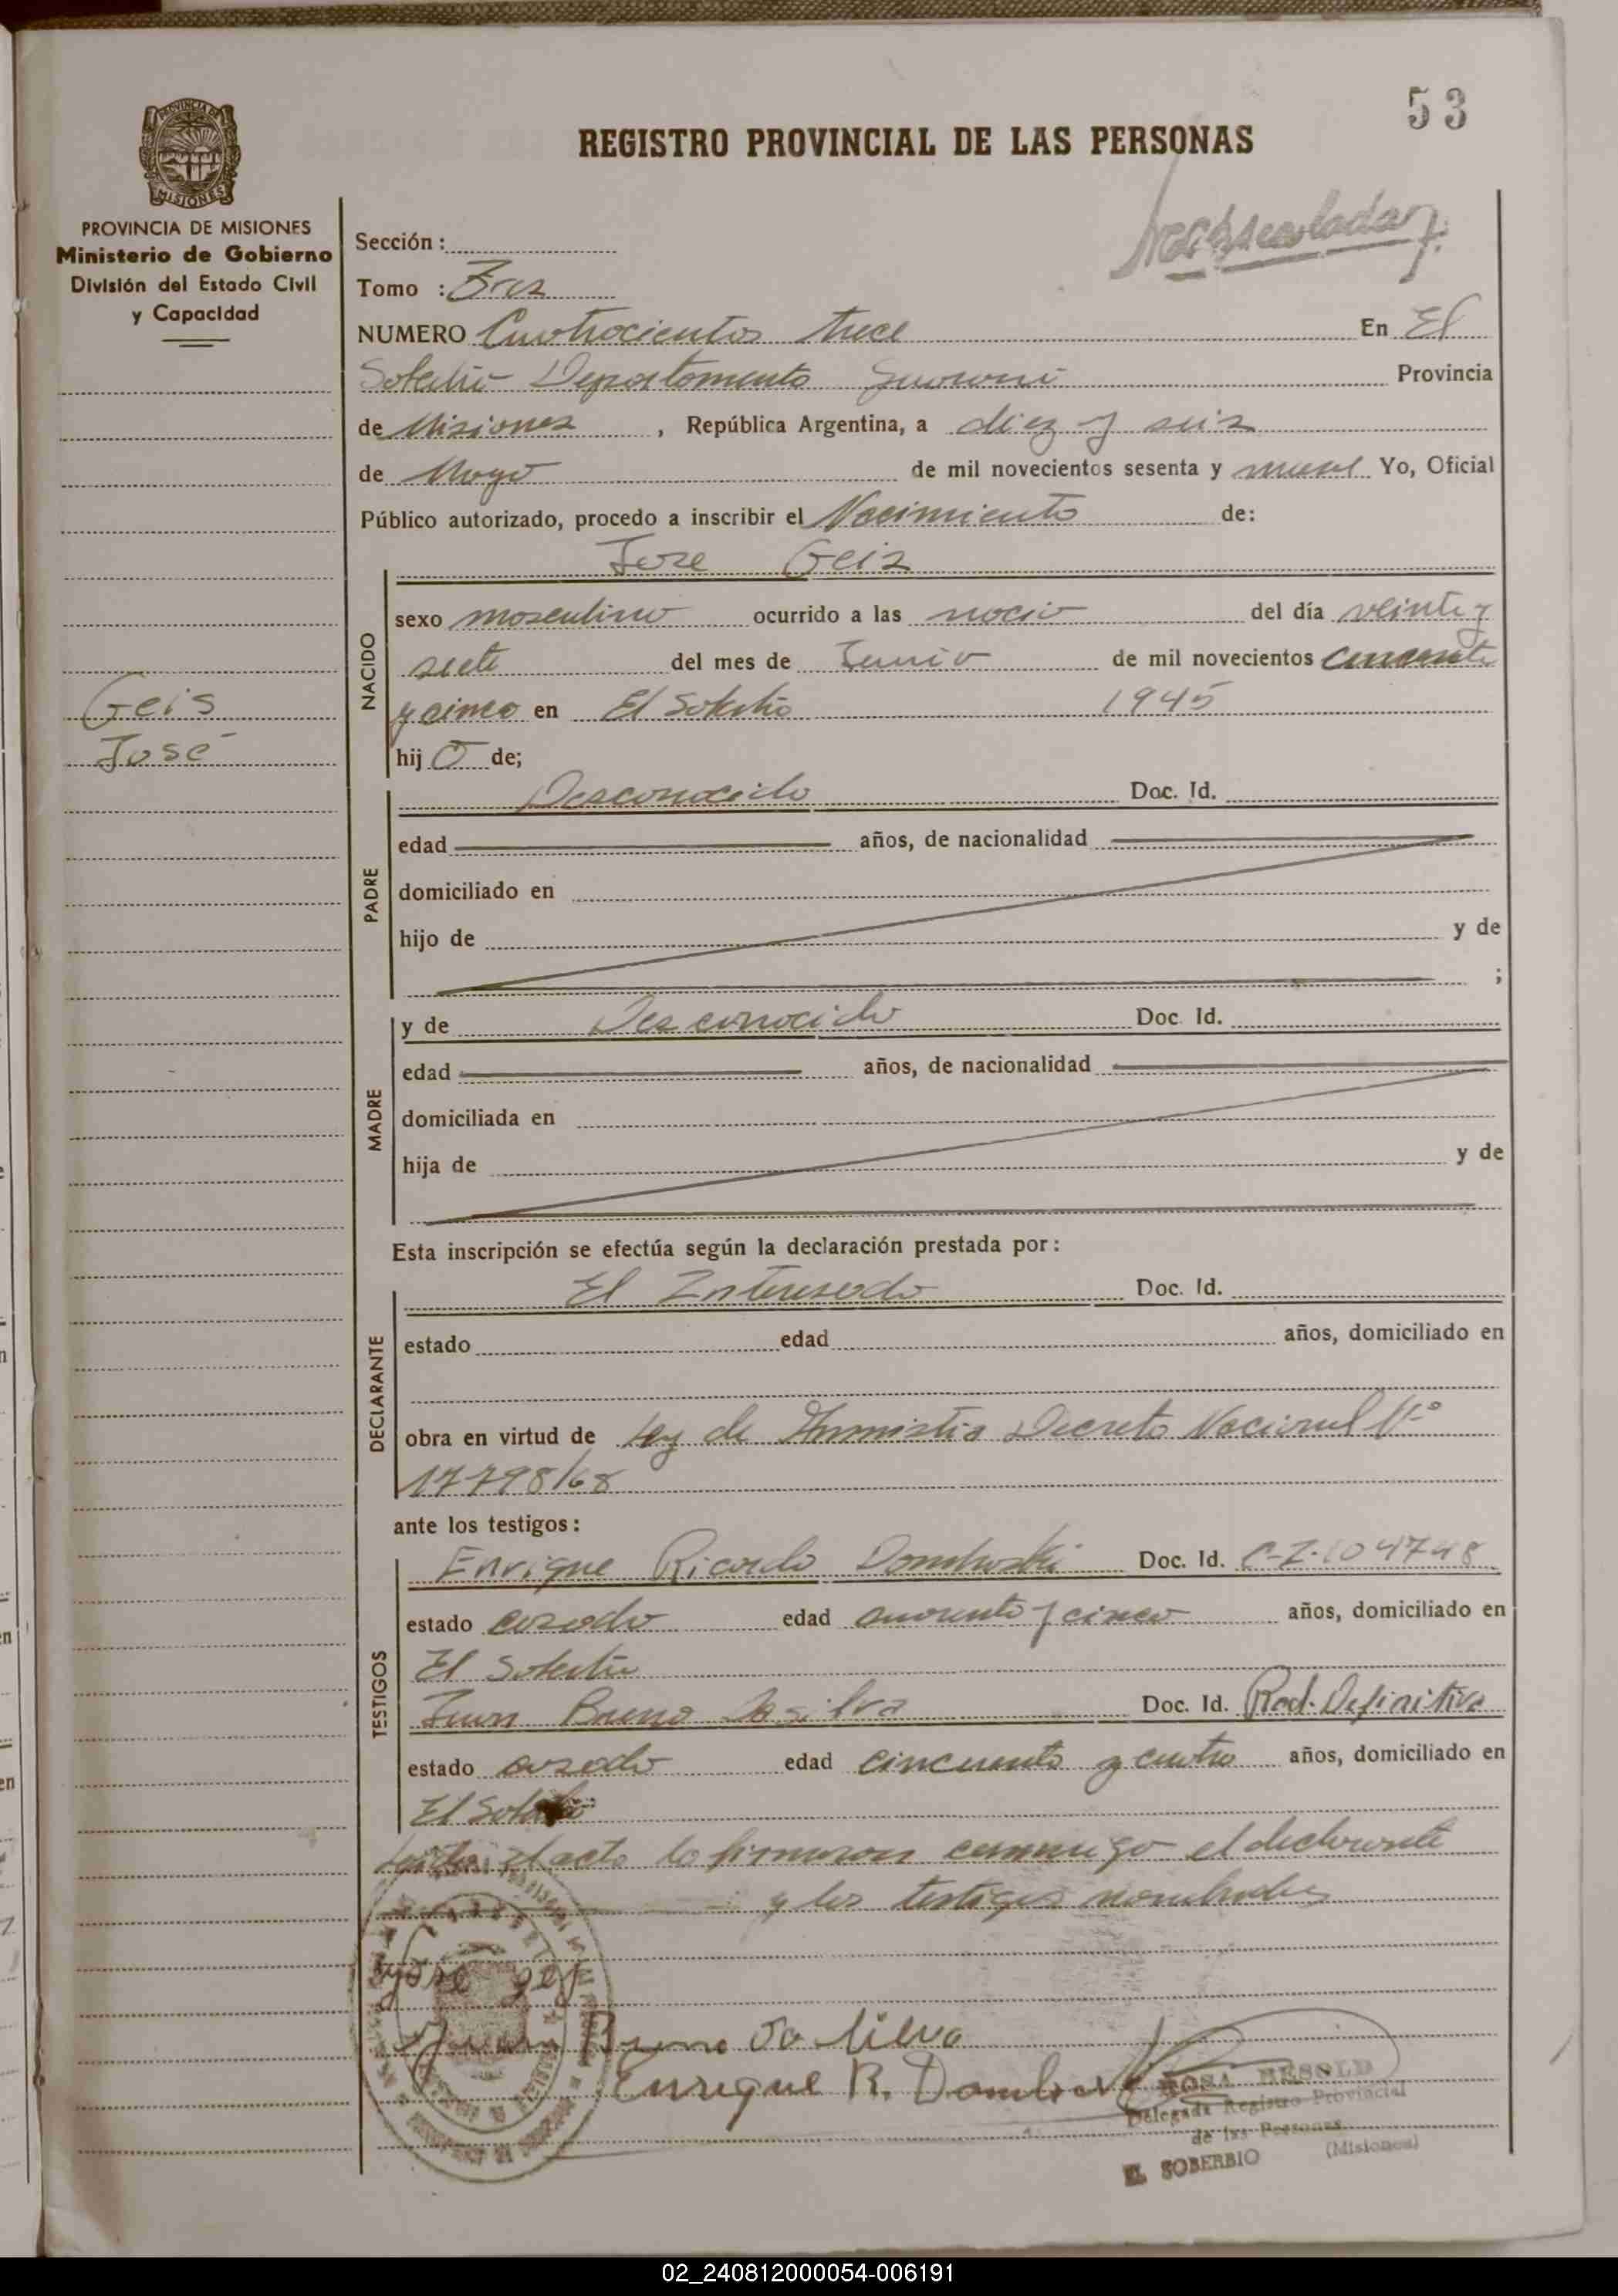 53
REGISTRO PROVINCIAL DE LAS PERSONAS
PROVINCIA DE MISIONES
Ministerio de Gobierno
División del Estado Civil
y Capacidad
Sección :
Tomo : Tres
NUMERO Cuatrocientos trece En El
Soberbio Departamento Guarani Provincia
de Misiones , República Argentina, a diez y seis
de Mayo de mil novecientos sesenta y nueve Yo, Oficial
Público autorizado, procedo a inscribir el Nacimiento de:
Jose Geis
NACIDO
sexo masculino ocurrido a las nocio del día veinte y
siete del mes de Junio de mil novecientos cuarenta
y cinco en El Soberbio 1945
hij o de;
Geis
José
PADRE
Desconocido Doc. Id.
edad años, de nacionalidad
domiciliado en
hijo de y de
;
MADRE
y de Desconocido Doc. Id.
edad años, de nacionalidad
domiciliada en
hija de y de
Esta inscripción se efectúa según la declaración prestada por:
DECLARANTE
El Interesado Doc. Id.
estado edad años, domiciliado en
obra en virtud de Ley de Amnistia Decreto Nacional Nº
17798/68
ante los testigos:
TESTIGOS
Enrique Ricardo Dombroski Doc. Id. C-I-104748
estado casado edad cuarenta y cinco años, domiciliado en
El Soberbio
Juan Bueno Dasilva Doc. Id. Rad. Definitiva
estado casado edad cincuenta y cuatro años, domiciliado en
El Soberbio
el acta la firmaron conmigo el declarante
y los testigos nombrados
Jose geis
Juan Bueno da Silva
Enrique R.
ROSA HESOLD
Delegada Registro Provincial
de las Personas
EL SOBERBIO (Misiones)
02_240812000054-006191